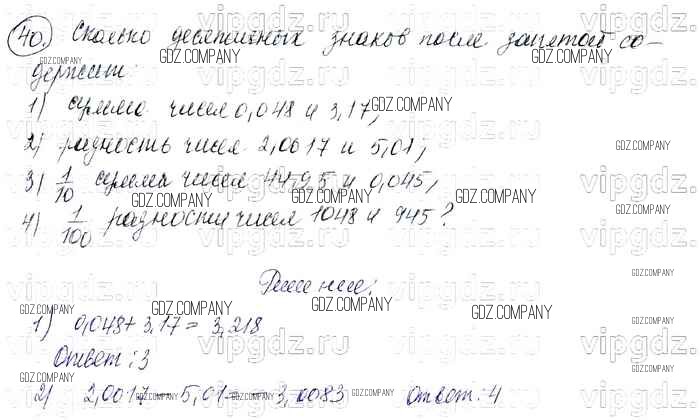 40. Сколько десятичных знаков после запятой со-
держит:
1) сумма чисел 0,048 и 3,17;
2) разность чисел 2,0017 и 5,01;
3) 1/10 суммы чисел 44,95 и 0,045;
4) 1/100 разности чисел 1048 и 945?
Решение:
1) 0,048 + 3,17 = 3,218
Ответ: 3
2) 2,0017 - 5,01 = -3,0083 Ответ: 4